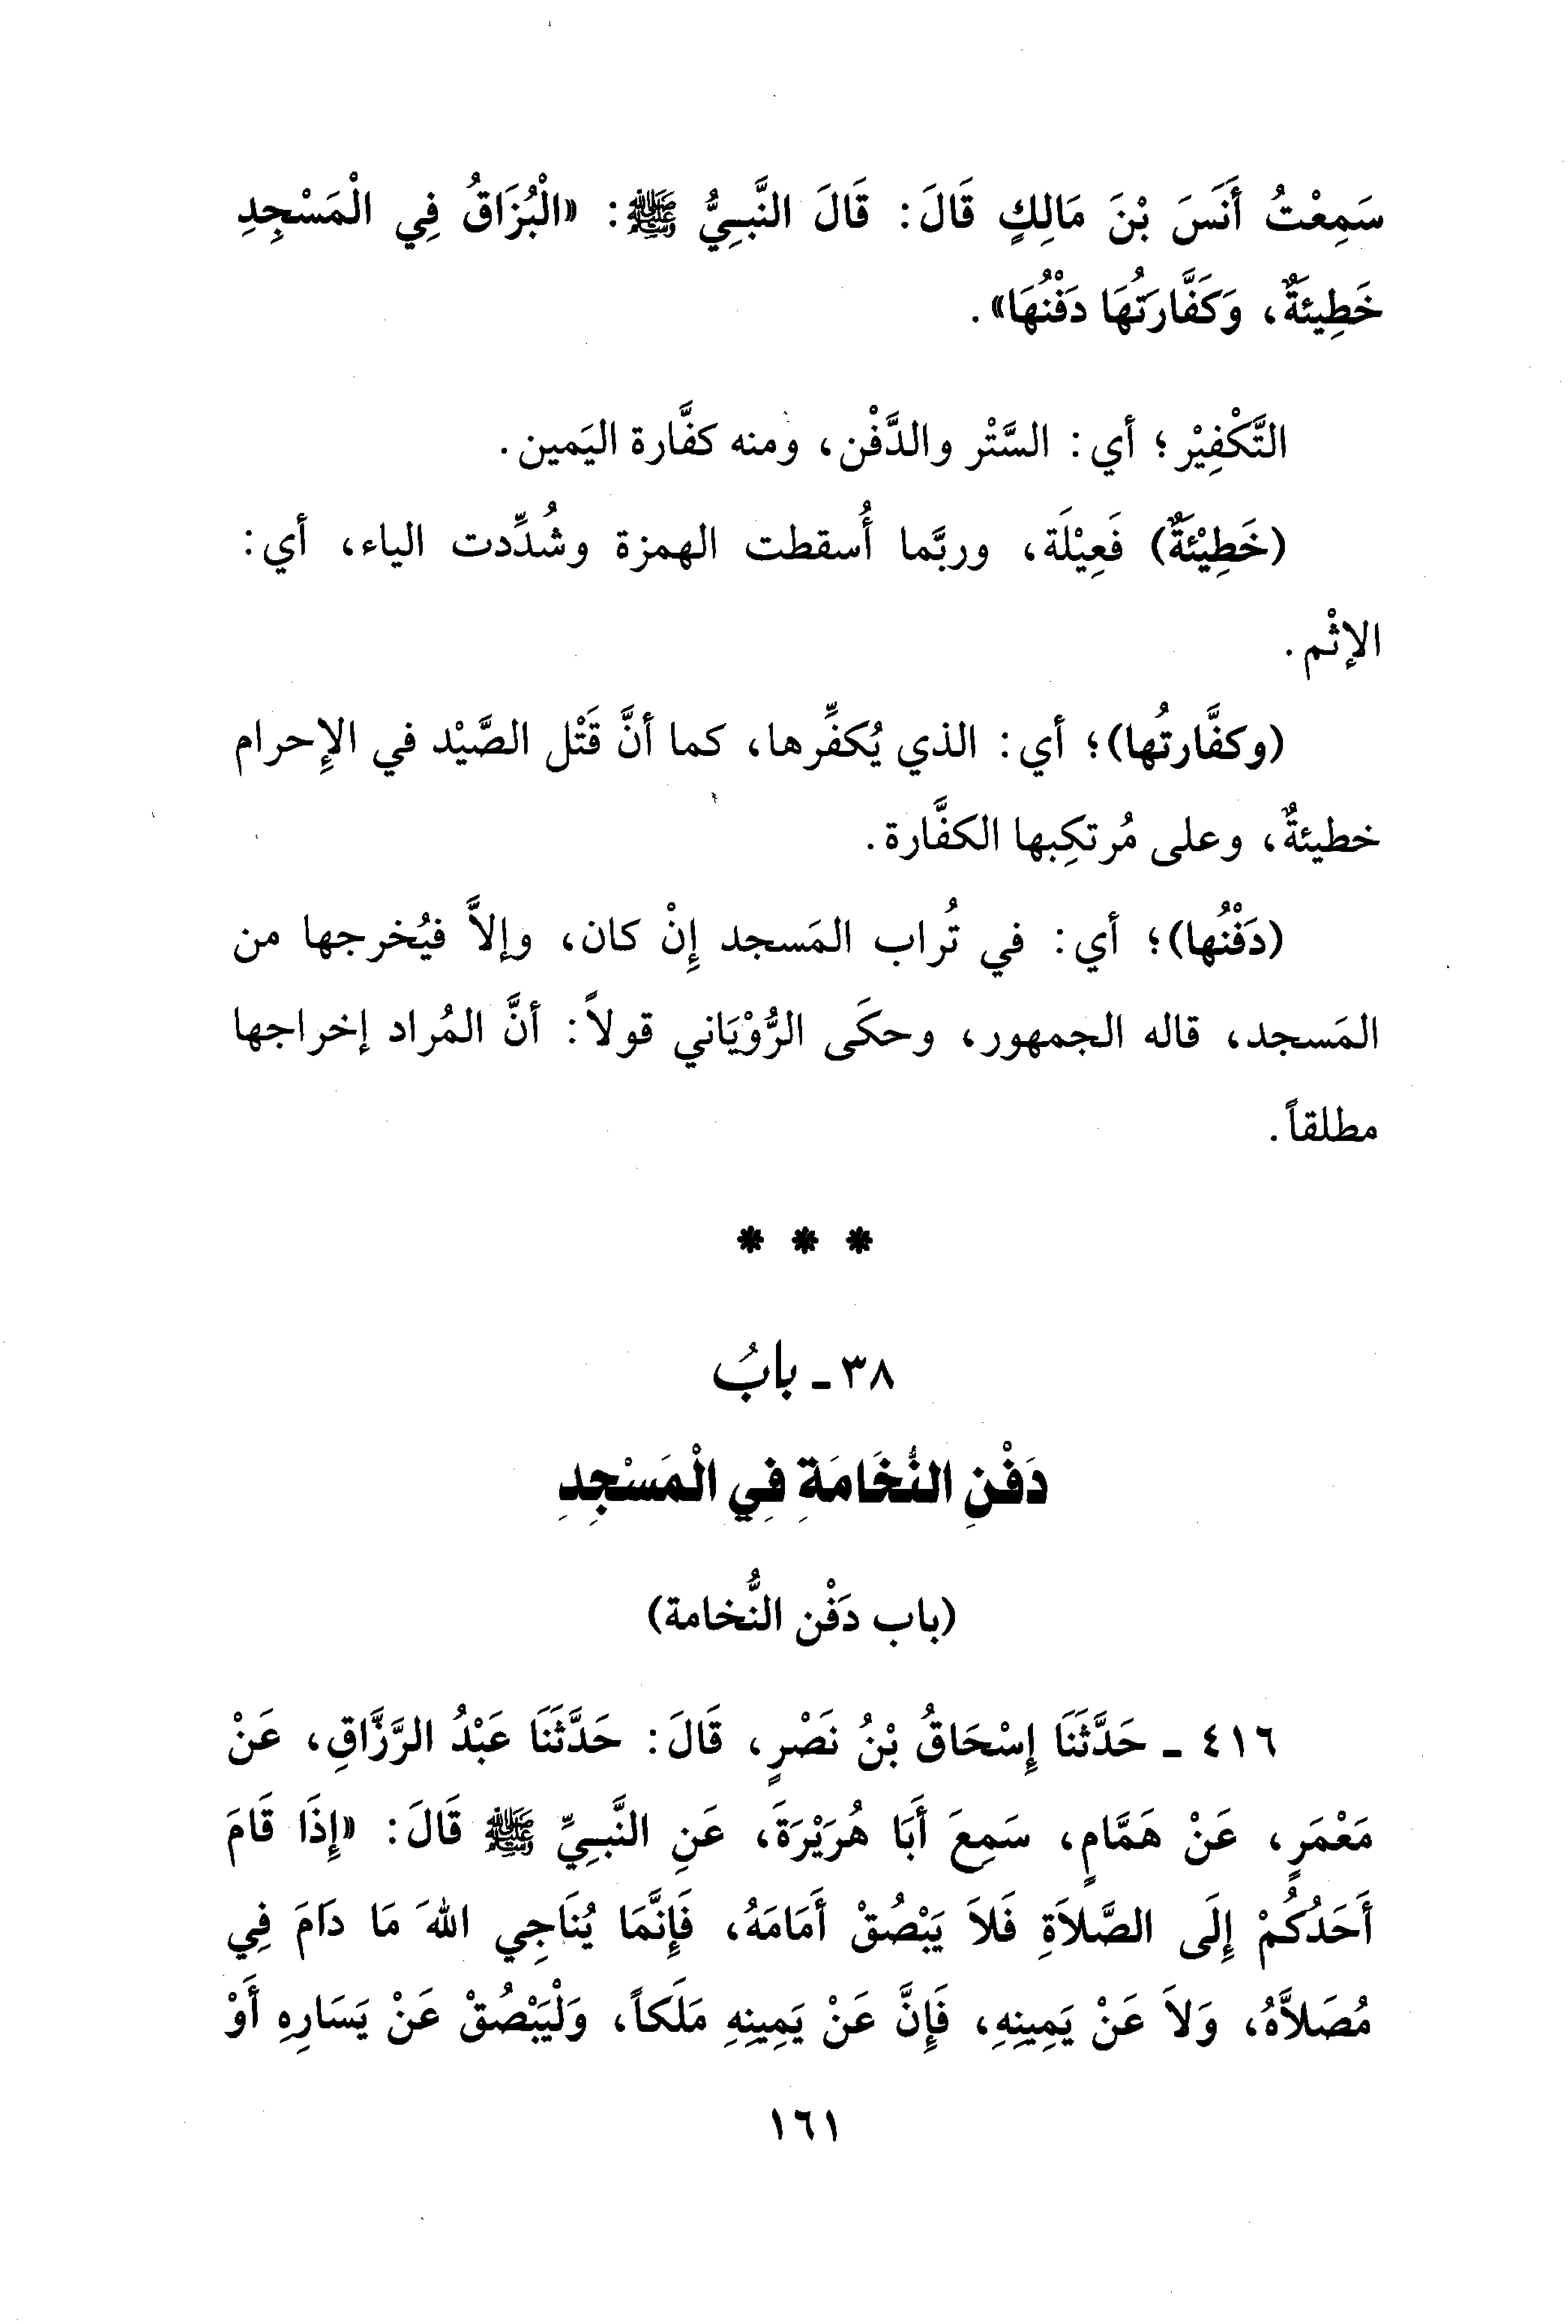 سَمِعْتُ أَنَسَ بْنَ مَالِكٍ قَالَ: قَالَ النَّبِيُّ ﷺ: «الْبُزَاقُ فِي الْمَسْجِدِ
خَطِيئَةٌ، وَكَفَّارَتُهَا دَفْنُهَا».
التَّكْفِيْر؛ أي: السَّتْر والدَّفْن، ومنه كفَّارة اليَمين.
(خَطِيْئَةٌ) فَعِيْلَة، وربَّما أُسقطت الهمزة وشُدِّدت الياء، أي:
الإثْم.
(وكفَّارتُها)؛ أي: الذي يُكفِّرها، كما أنَّ قَتْل الصَّيْد في الإحرام
خطيئةٌ، وعلى مُرتكِبها الكفَّارة.
(دَفْنُها)؛ أي: في تُراب المَسجد إِنْ كان، وإلاَّ فيُخرجها من
المَسجد، قاله الجمهور، وحكَى الرُّوْيَاني قولاً: أنَّ المُراد إخراجها
مطلقاً.
* * *
٣٨ ـ بابُ
دَفْنِ النُّخَامَةِ فِي الْمَسْجِدِ
(باب دَفْن النُّخامة)
٤١٦ ـ حَدَّثَنَا إِسْحَاقُ بْنُ نَصْرٍ، قَالَ: حَدَّثَنَا عَبْدُ الرَّزَّاقِ، عَنْ
مَعْمَرٍ، عَنْ هَمَّامٍ، سَمِعَ أَبَا هُرَيْرَةَ، عَنِ النَّبِيِّ ﷺ قَالَ: «إِذَا قَامَ
أَحَدُكُمْ إِلَى الصَّلاَةِ فَلاَ يَبْصُقْ أَمَامَهُ، فَإِنَّمَا يُنَاجِي اللهَ مَا دَامَ فِي
مُصَلاَّهُ، وَلاَ عَنْ يَمِينِهِ، فَإِنَّ عَنْ يَمِينِهِ مَلَكاً، وَلْيَبْصُقْ عَنْ يَسَارِهِ أَوْ
١٦١